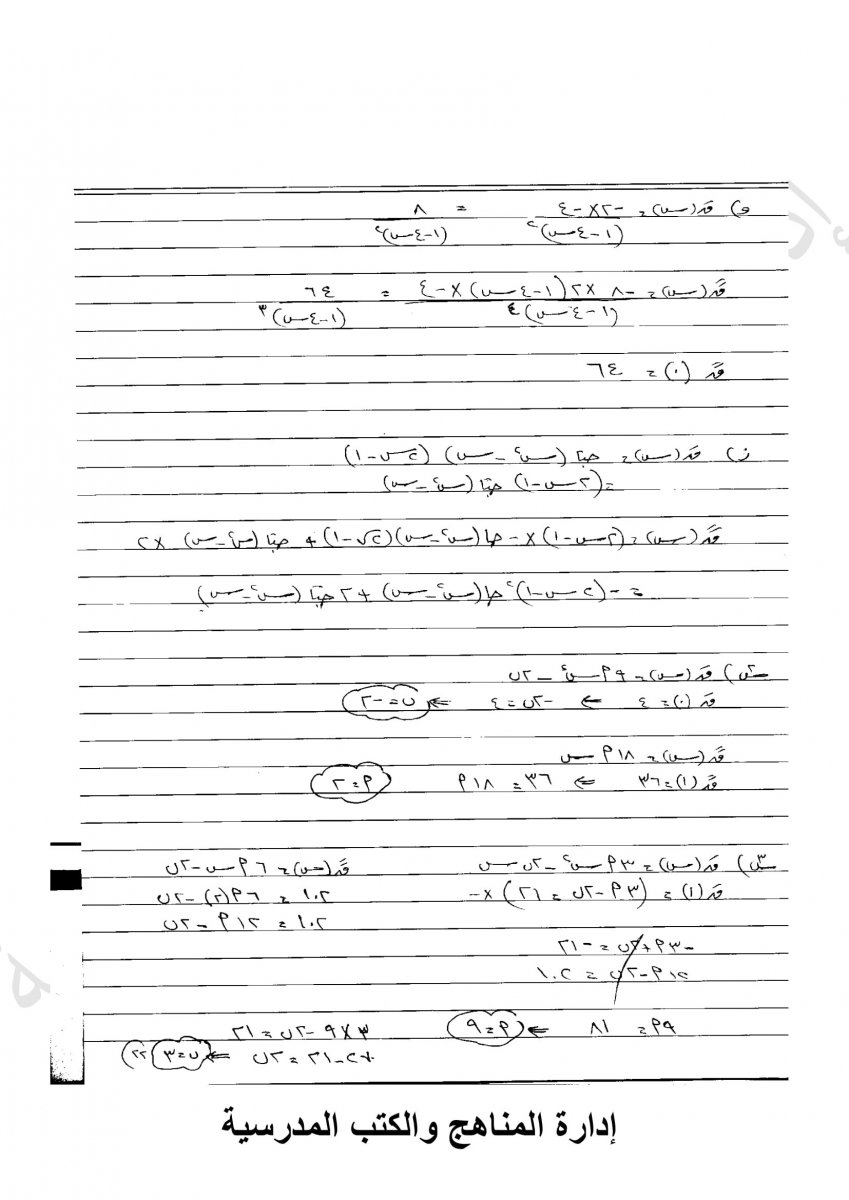 و) قَ(س) = -٢×-٤ / (١-٤س)٢ = ٨ / (١-٤س)٢
قً(س) = -٨×٢(١-٤س)×-٤ / (١-٤س)٤ = ٦٤ / (١-٤س)٣
قً(٠) = ٦٤
ز) قَ(س) = جتا(س٢-س)(٢س-١)
= (٢س-١) جتا(س٢-س)
قً(س) = (٢س-١)×-جا(س٢-س)(٢س-١) + جتا(س٢-س)×٢
= -(٢س-١)٢ جا(س٢-س) + ٢جتا(س٢-س)
س٢) قَ(س) = ٩م س٢ - ٢ن
قَ(٠) = ٤ ⇐ -٢ن = ٤ ⇐ ن = -٢
قً(س) = ١٨م س
قً(١) = ٣٦ ⇐ ٣٦ = ١٨م م = ٢
س٣) قَ(س) = ٣م س٢ - ٢ن س قً(س) = ٦م س - ٢ن
قَ(١) = (٣م - ٢ن = ٢١)×- ١٠٢ = ٦م(٢) - ٢ن
١٠٢ = ١٢م - ٢ن
-٣م + ٢ن = -٢١
١٢م - ٢ن = ١٠٢
٩م = ٨١ ⇐ م = ٩ ٣×٩ - ٢ن = ٢١
٢٧ - ٢١ = ٢ن ⇐ ن = ٣ ٢٢
إدارة المناهج والكتب المدرسية